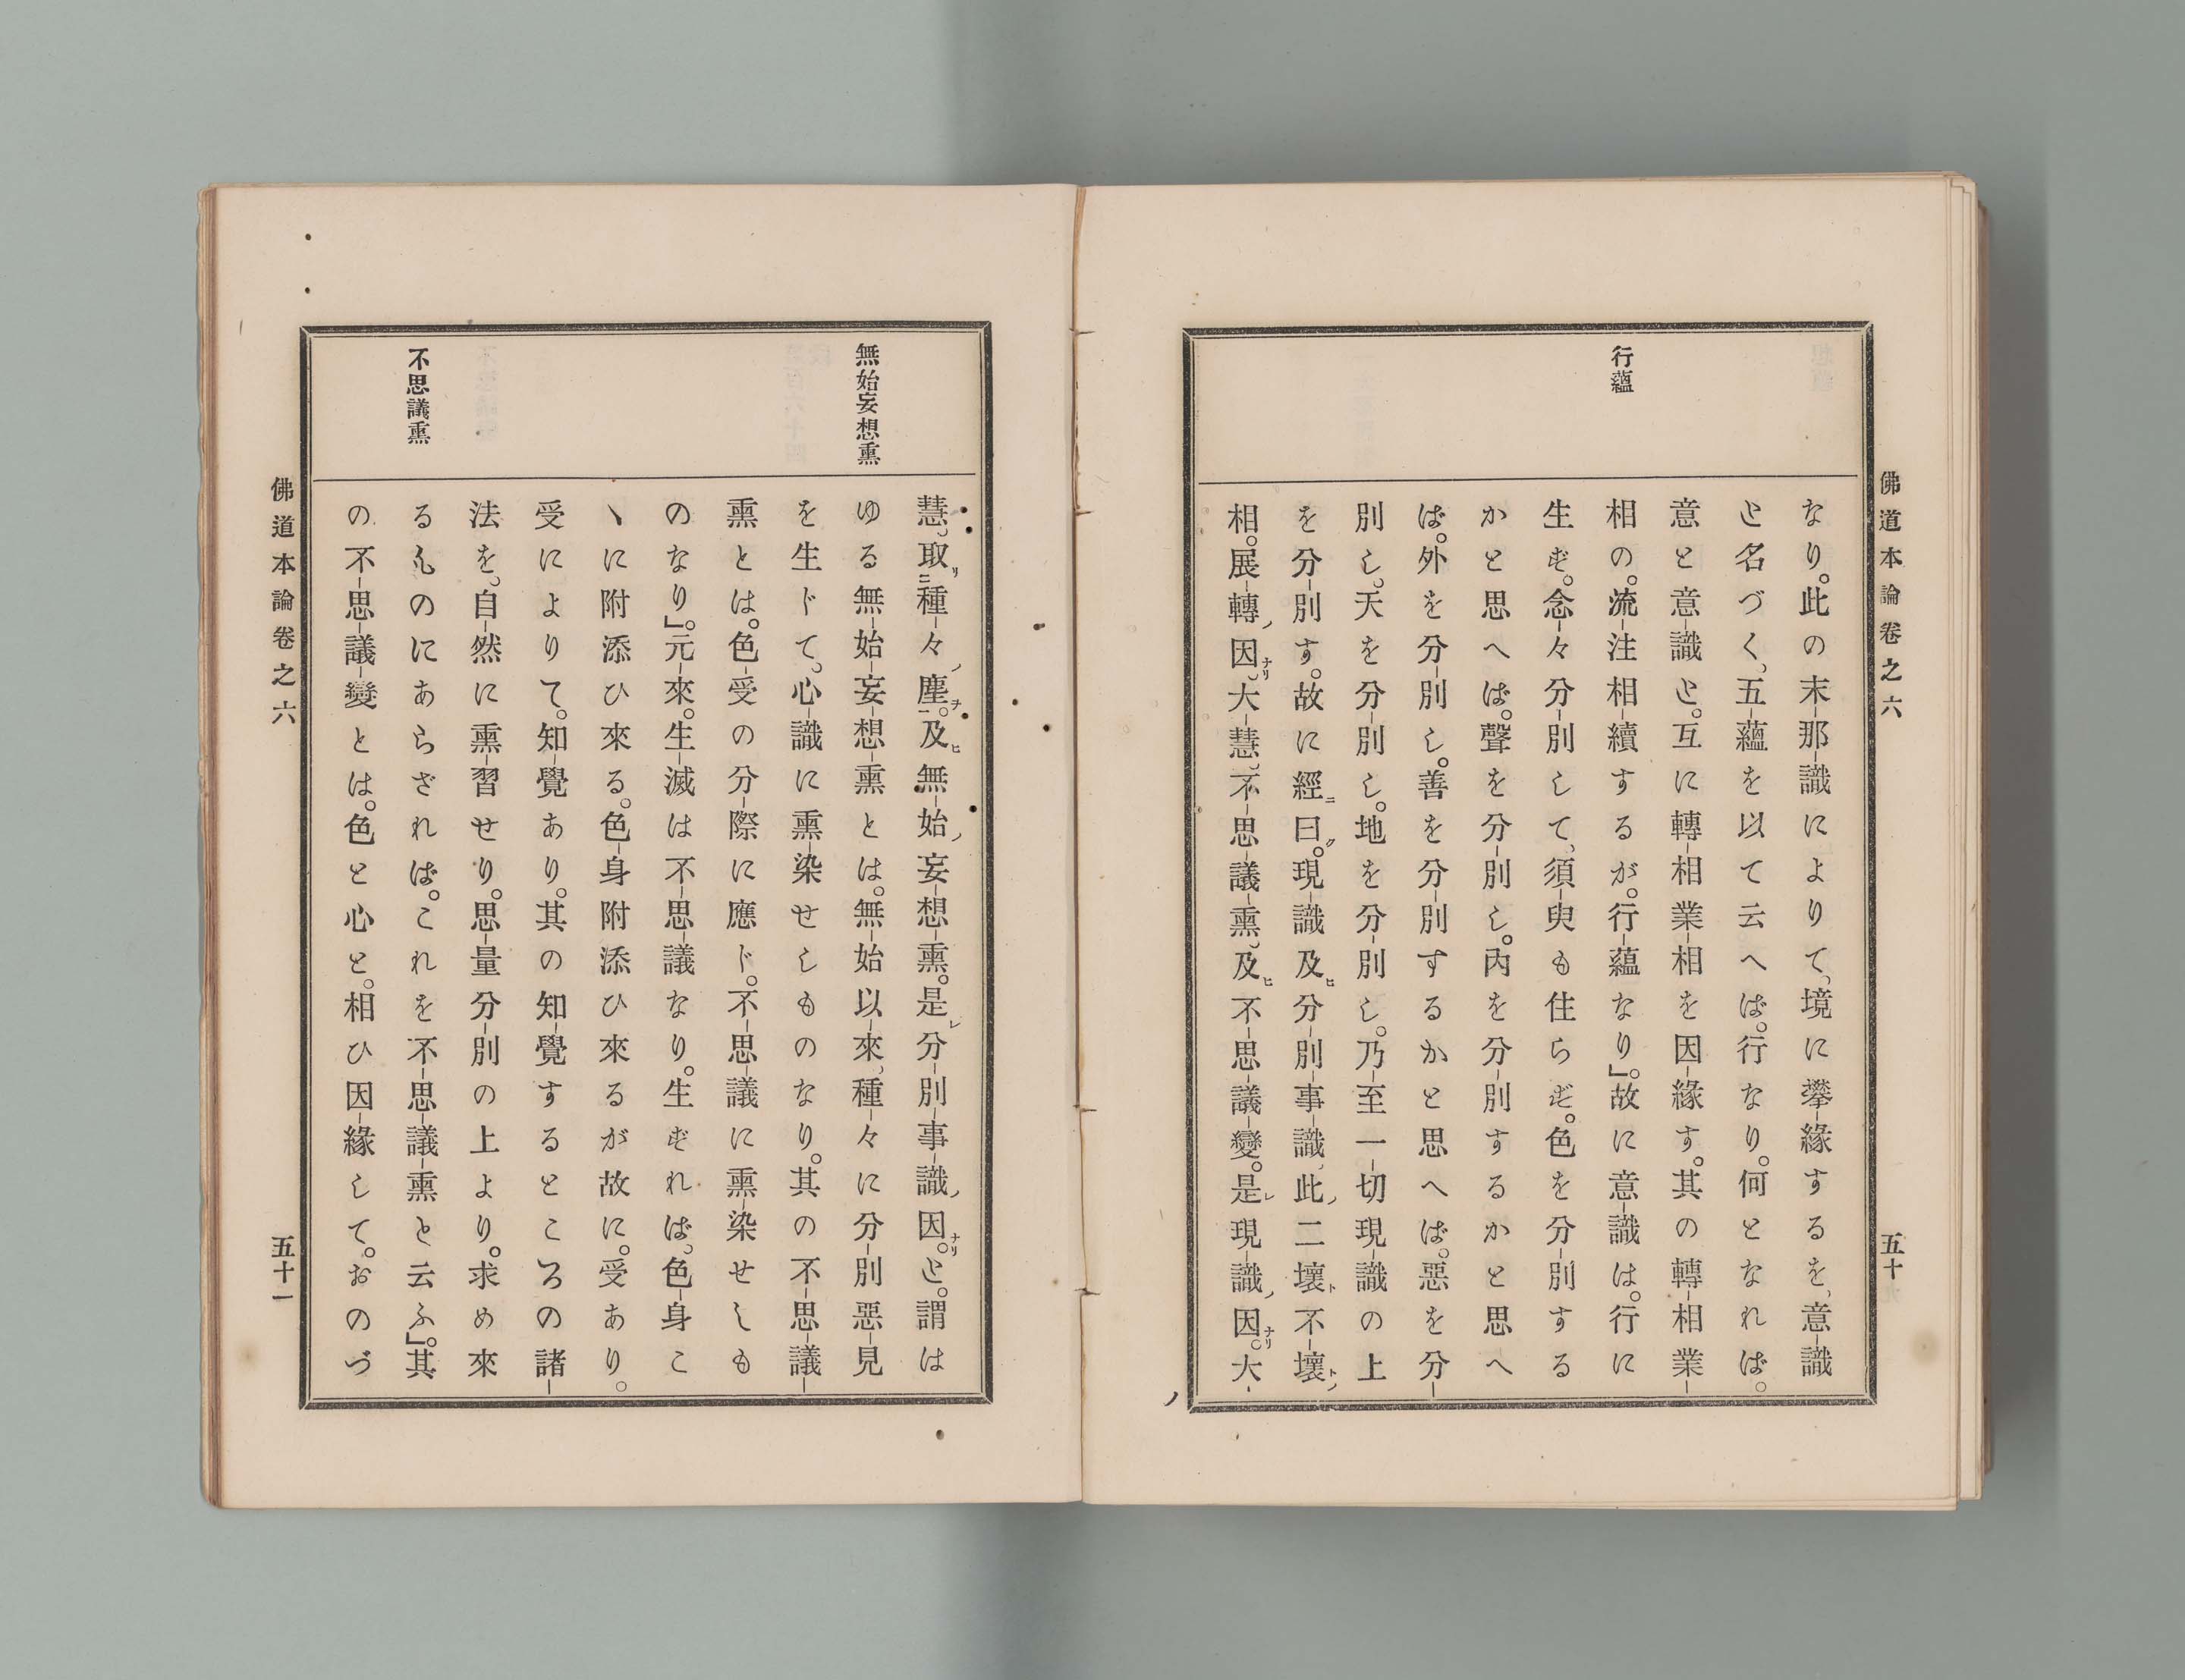 佛道本論卷之六
五十
行蘊
なり。此の末那識によりて、境に攀緣するを、意識
と名づく、五蘊を以て云へば。行なり。何となれば。
意と意識と。互に轉相業相を因緣す。其の轉相業
相の。流注相續するが。行蘊なり」。故に意識は。行に
生ず。念々分別して、須臾も住らず。色を分別する
かと思へば。聲を分別し。內を分別するかと思へ
ば。外を分別し。善を分別するかと思へば。惡を分
別し。天を分別し。地を分別し。乃至一切現識の上
を分別す。故に經ニ曰ク。現識及ヒ分別事識、此ノ二壞ト不壞トノ
相。展轉ノ因ナリ、大慧、不思議熏、及ヒ不思議變。是レ現識ノ因ナリ。大
無始妄想熏
不思議熏
慧、取リ二種々ノ塵ヲ一。及ヒ無始ノ妄想熏。是レ分別事識ノ因ナリ。と。謂は
ゆる無始妄想熏とは。無始以來、種々に分別惡見
を生じて。心識に熏染せしものなり。其の不思議
熏とは。色受の分際に應じ。不思議に熏染せしも
のなり」。元來。生滅は不思議なり。生ずれば、色身こ
ヽに附添ひ來る。色身附添ひ來るが故に。受あり。
受によりて。知覺あり。其の知覺するところの諸
法を、自然に熏習せり。思量分別の上より。求め來
るものにあらざれば。これを不思議熏と云ふ」。其
の不思議變とは。色と心と。相ひ因緣して。おのづ
佛道本論卷之六
五十一